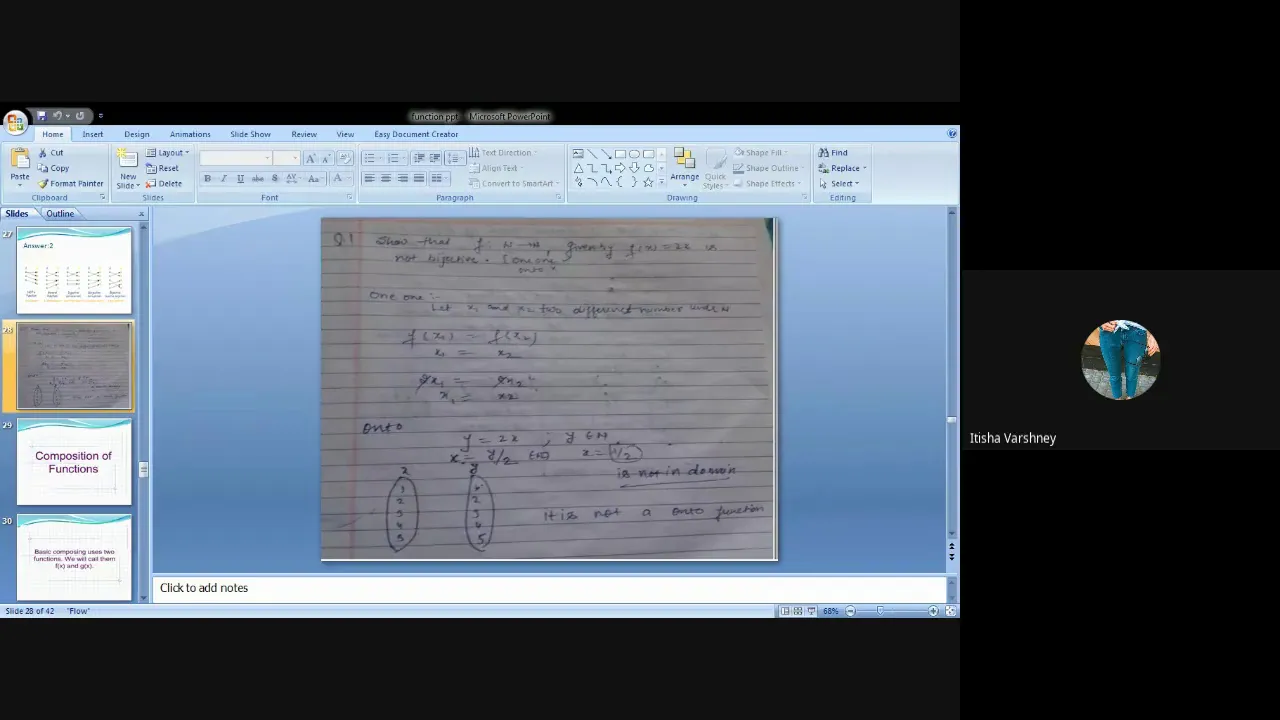 function.ppt - Microsoft PowerPoint
Home Insert Design Animations Slide Show Review View Easy Document Creator
Paste
Cut
Copy
Format Painter
Clipboard
New Slide
Layout
Reset
Delete
Slides
Font
Paragraph
Text Direction
Align Text
Convert to SmartArt
Arrange
Quick Styles
Shape Fill
Shape Outline
Shape Effects
Drawing
Find
Replace
Select
Editing
Slides Outline
27
Answer:2
28
29
Composition of
Functions
30
Basic composing uses two
functions. We will call them
f(x) and g(x).
Q.1 Show that f: N→N, given by f(x) = 2x is
not bijective. [one one
onto x
One one :-
Let x1 and x2 two different number
f(x1) = f(x2)
x1 = x2
2x1 = 2x2
x1 = x2
Onto
y = 2x ; y ∈ N
x = y/2 x = 1/2
is not in domain
x y
1
2 2
3 3
4 4
5 5
It is not a onto function
Click to add notes
Slide 28 of 42 "Flow" 68%
Itisha Varshney